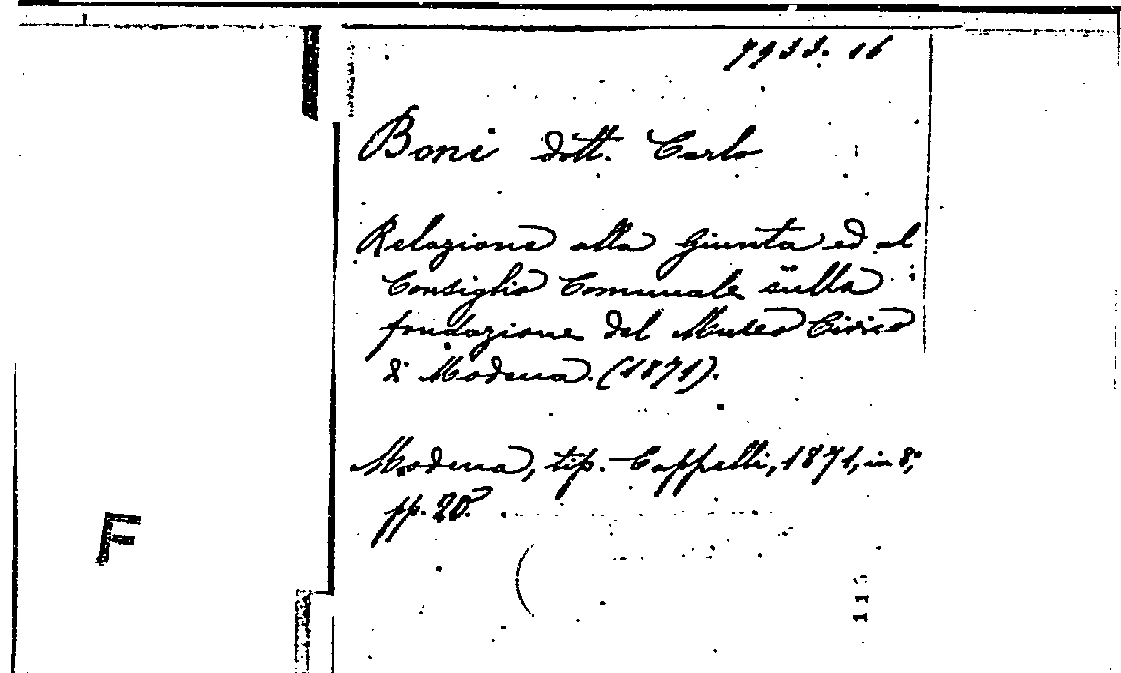 7933. 16
Boni dott. Carlo
Relazione alla Giunta ed al
Consiglio Comunale sulla
fondazione del Museo Civico
di Modena. (1871).
Modena, tip. Cappelli, 1871, in 8°,
pp. 20.
F